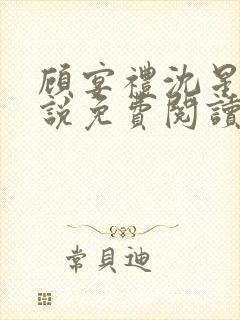 顾宴禮沈星
說免費閱讀
常貝迪